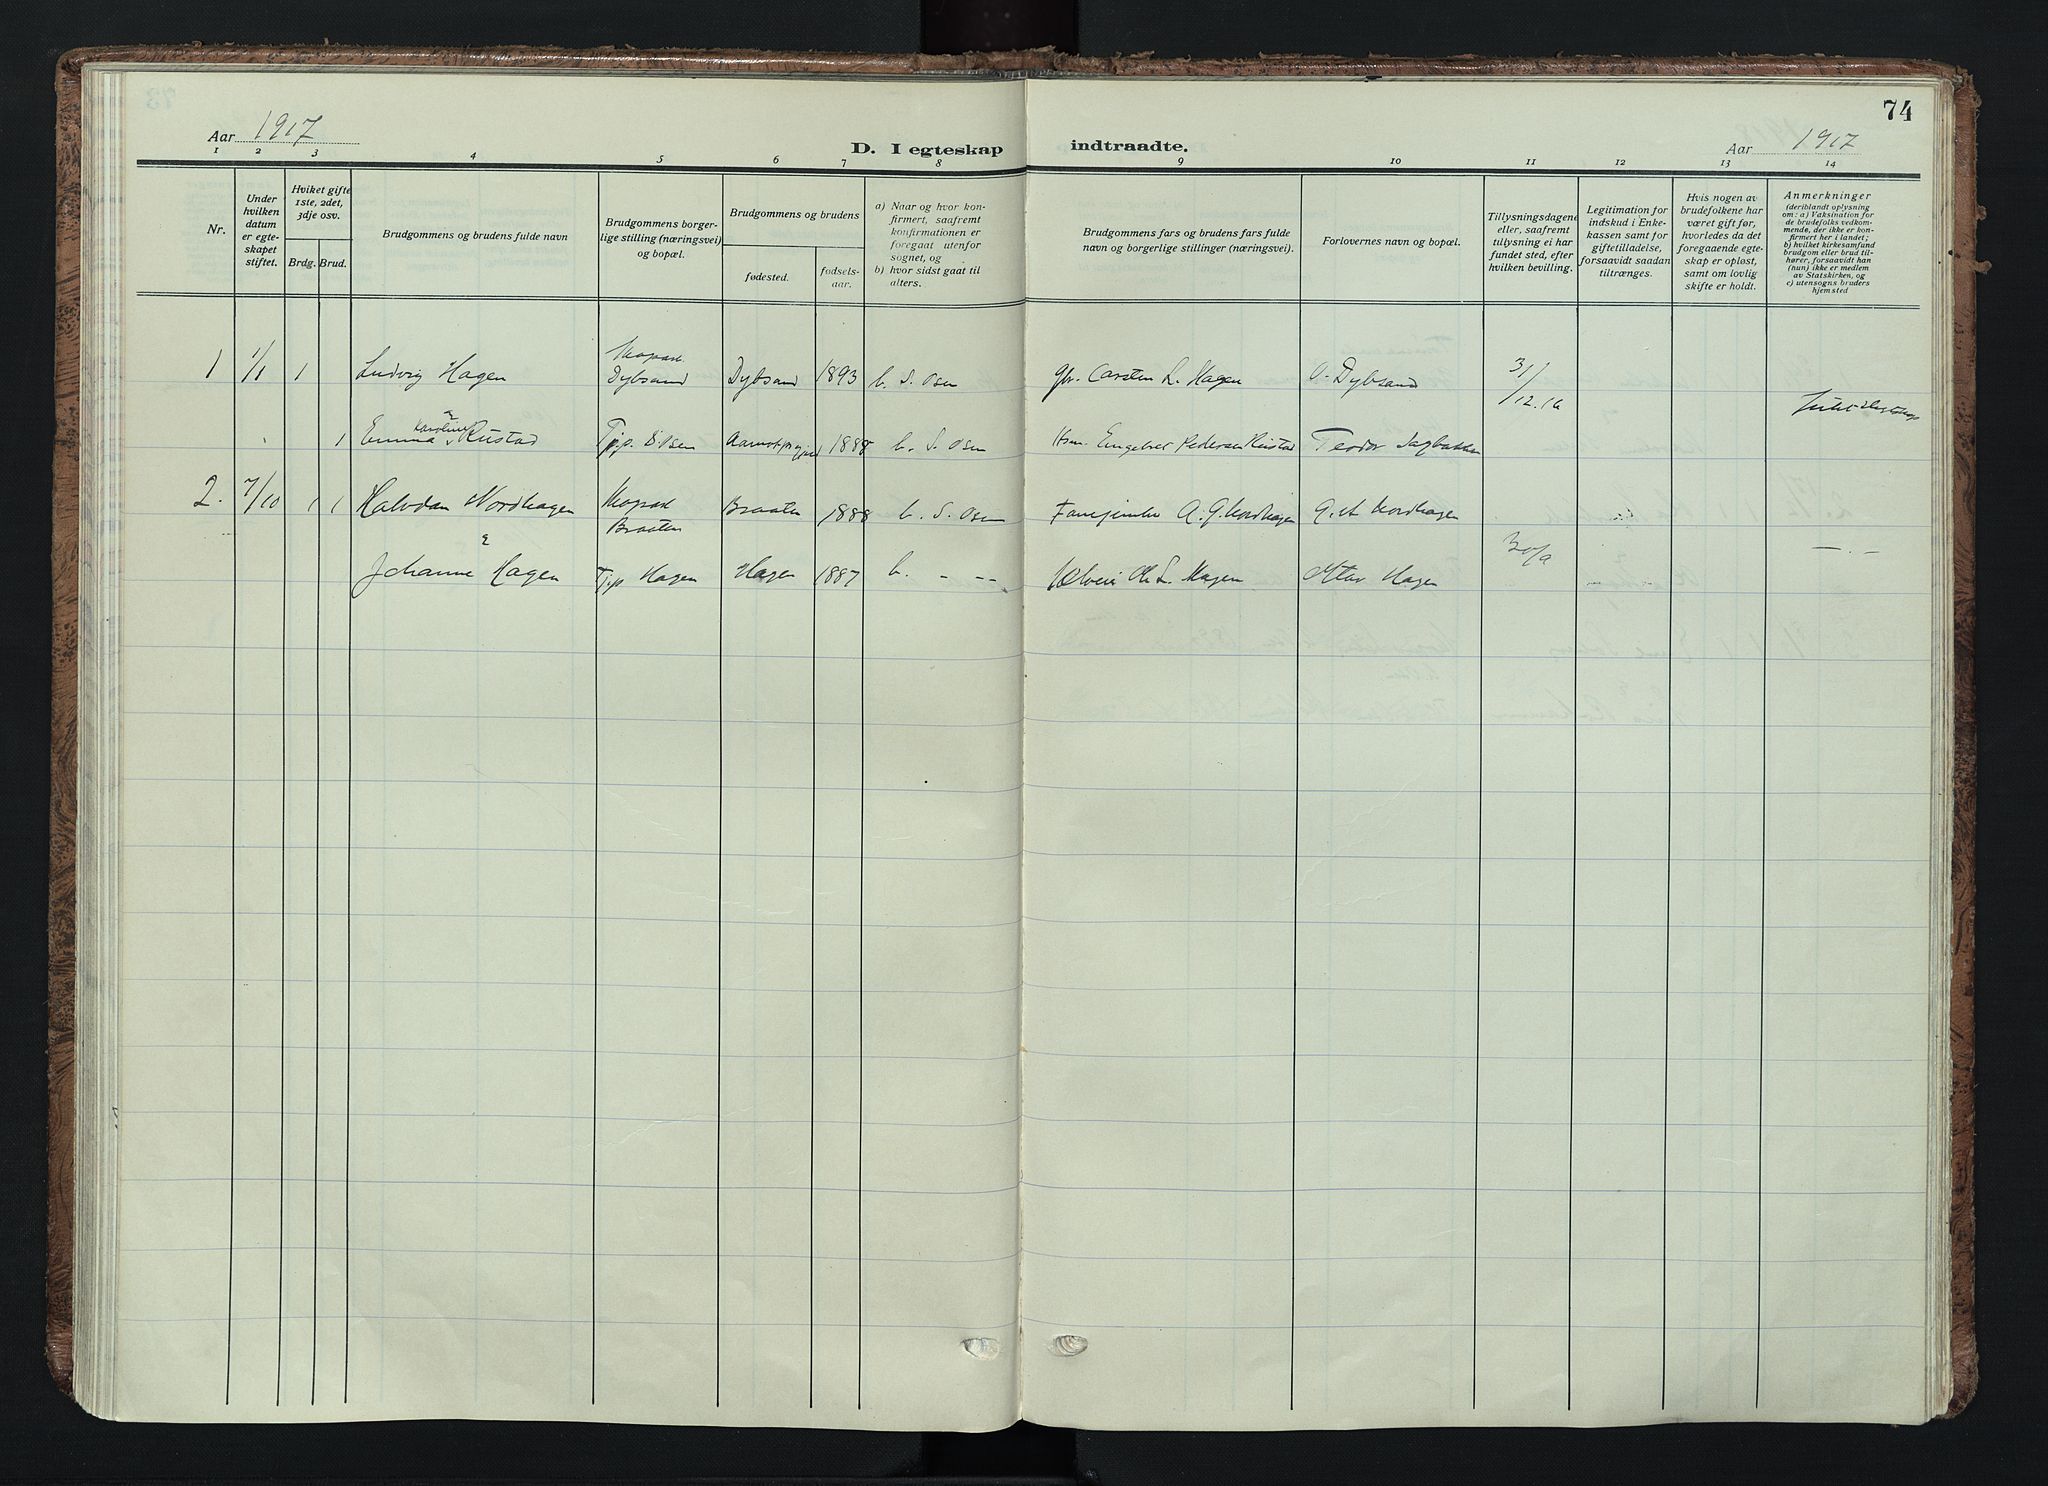 74
Aar 1917
D. I egteskap indtraadte.
Aar 1917
1 2 3 4 5 6 7 8 9 10 11 12 13 14
Nr.
Under hvilken datum er egteskapet stiftet.
Hviket gifte 1ste, 2det, 3dje osv.
Brdg. Brud.
Brudgommens og brudens fulde navn
Brudgommens borgerlige stilling (næringsvei) og bopæl.
Brudgommens og brudens
fødested.
fødselsaar.
a) Naar og hvor konfirmert, saafremt konfirmationen er foregaat utenfor sognet, og
b) hvor sidst gaat til alters.
Brudgommens fars og brudens fars fulde navn og borgerlige stillinger (næringsvei).
Forlovernes navn og bopæl.
Tillysningsdagene eller, saafremt tillysning ei har fundet sted, efter hvilken bevilling.
Legitimation for indskud i Enkekassen samt for giftetilladelse, forsaavidt saadan tiltrænges.
Hvis nogen av brudefolkene har været gift før, hvorledes da det foregaaende egteskap er opløst, samt om lovlig skifte er holdt.
Anmerkninger
(deriblandt oplysning om: a) Vaksination for de brudefolks vedkommende, der ikke er konfirmert her i landet; b) hvilket kirkesamfund brudgom eller brud tilhører, forsaavidt han (hun) ikke er medlem av Statskirken, og c) utensogns bruders hjemsted
1 1/1 1 Ludvig Hagen Dybsand Dybsand 1893 b. S. Osen Gbr. Carsten L. Hagen O. Dybsand 31/12.16
&
1 Emma Karoline Rustad Tjp. S. Osen 1888 b. S. Osen Hsm. Engebret Pedersen Rustad Teodor Sagbakken
2. 7/10 1 1 Halvdan Nordhagen Braaten Braaten 1888 b. S. Osen A. G. Nordhagen G. A. Nordhagen
& 30/9 — . —
Johanne Hagen Tjp Hagen Hagen 1887 b. - -- Ole L. Hagen Hagen